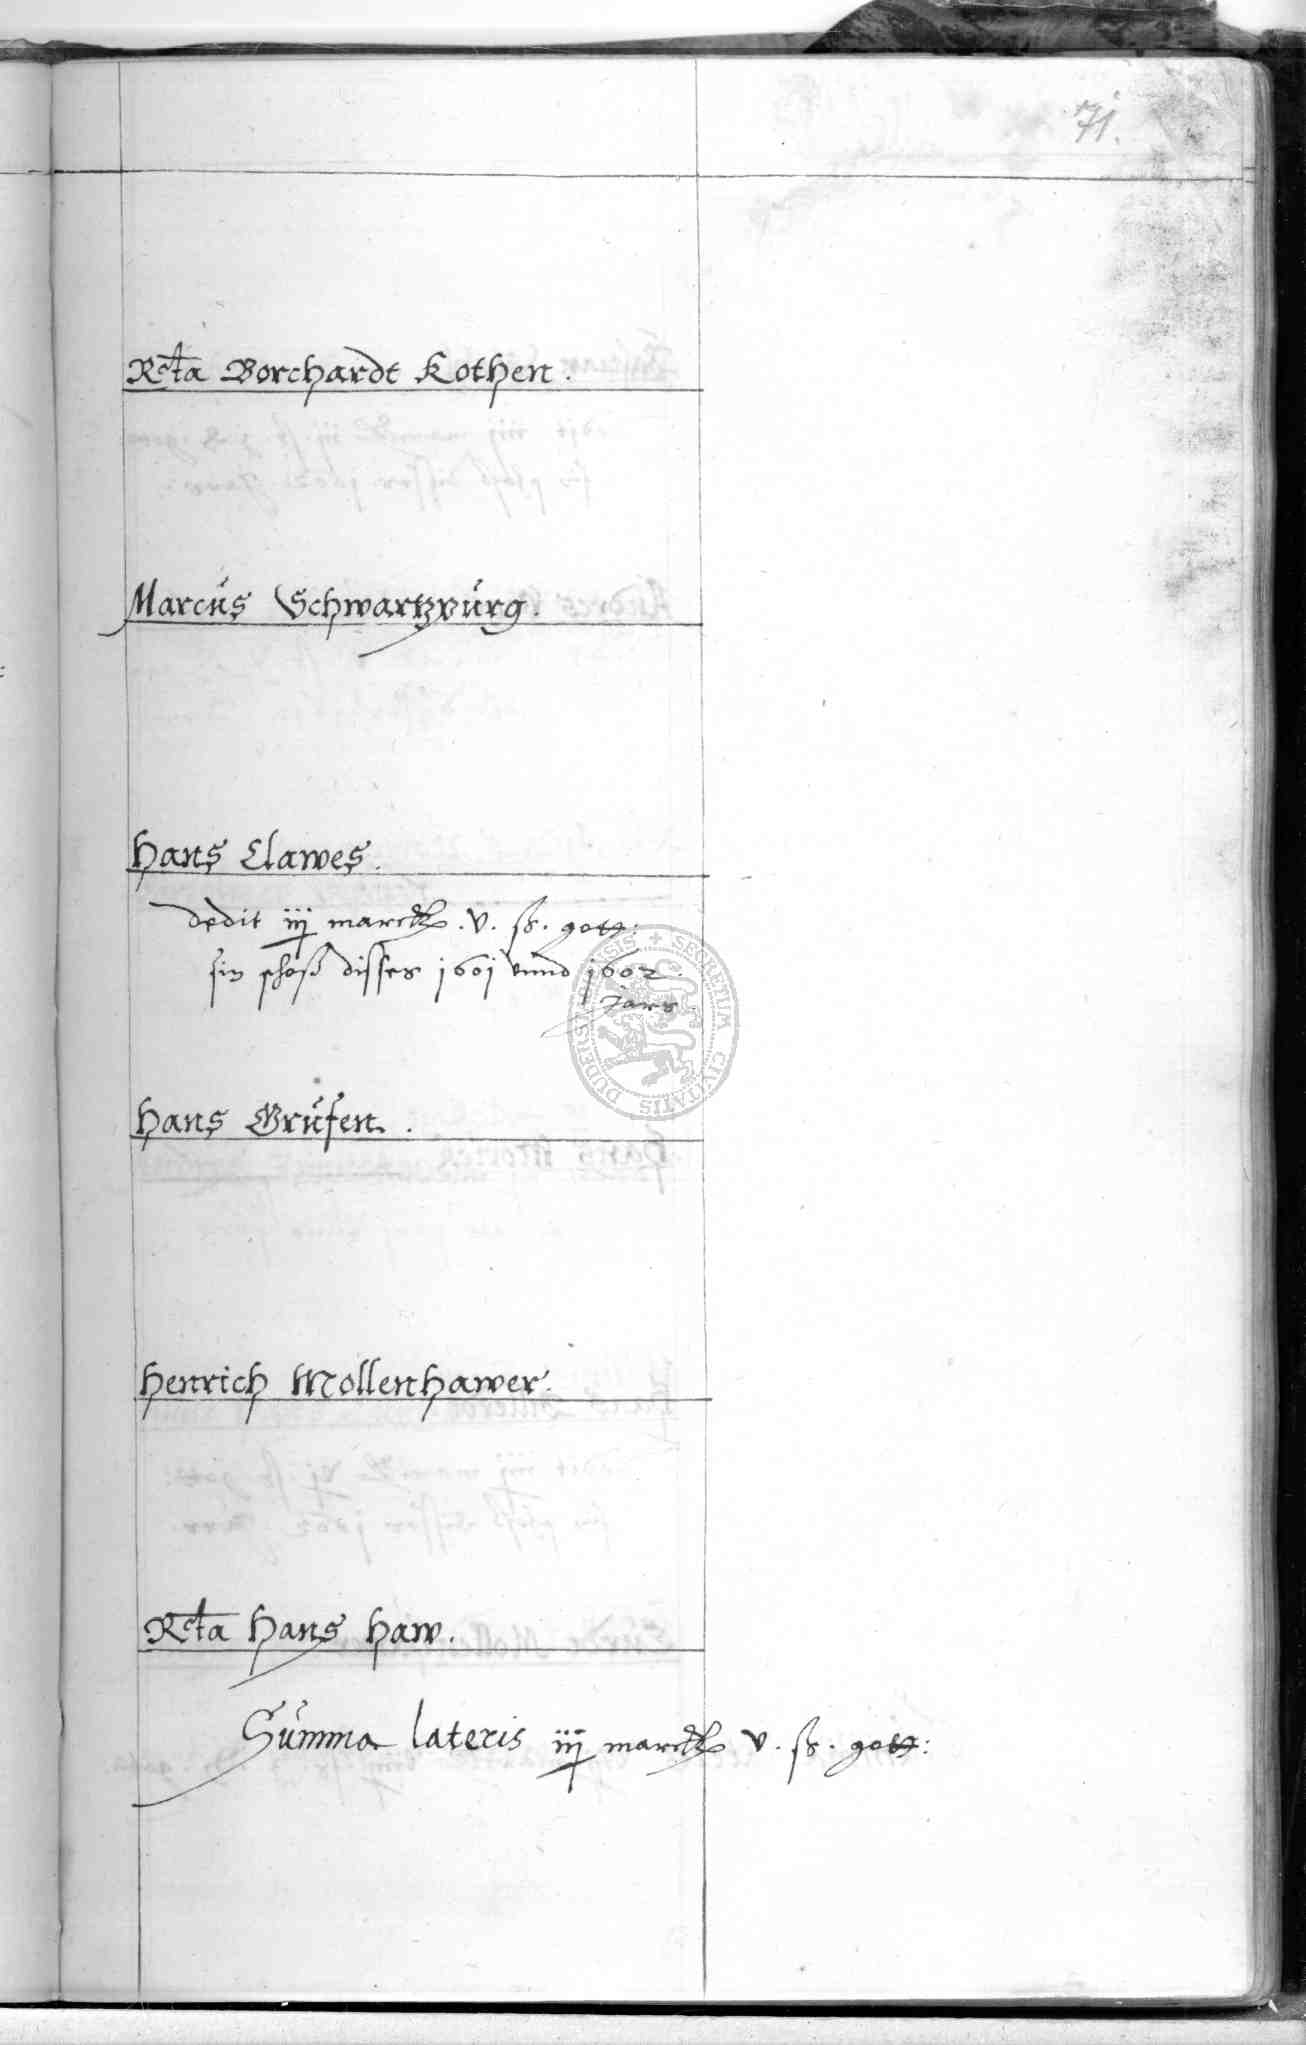 71.
Rcta Borchardt Kothen.
Marcus Schwartzburg.
Hans Clawes.
dedit iij marck. v. ß. gott:
sin schoß disses 1601 vnnd 1602.
Jars.
Hans Grufen.
Henrich Mollenhawer.
Rcta Hans Haw.
Summa lateris iij marck v. ß. gott:
SECRETUM CIVITATIS DUDERSTADENSIS